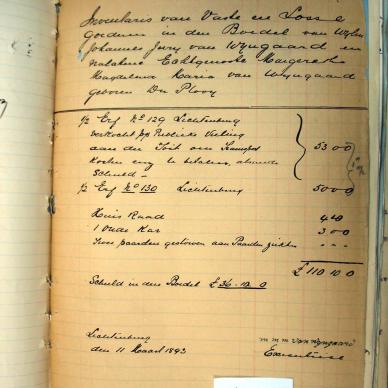 Inventaris van Vaste en Losse
Goederen in den Boedel van Wylen
Johannes Jurry van Wyngaard en
nalatene Echtgenoote Margaretha
Magdalena Maria van Wyngaard
geboren Du Plooy
1/2 Erf No 129 Lichtenburg
verkocht p/s Publieke Veiling
aan die Som om Transport
Kosten enz te betalen, alsmede
Schuld – 53 0 0
1/2 Erf No 130 Lichtenburg 50 0 0
Huis Raad 4 0 0
1 Oude Kar 3 0 0
Twee paarden gestorven aan Paarden ziekte - - -
£ 110 10 0
Schuld in den Boedel £ 36-10 0
Lichtenburg
den 11 Maart 1893
m m m van Wyngaard
Executrice